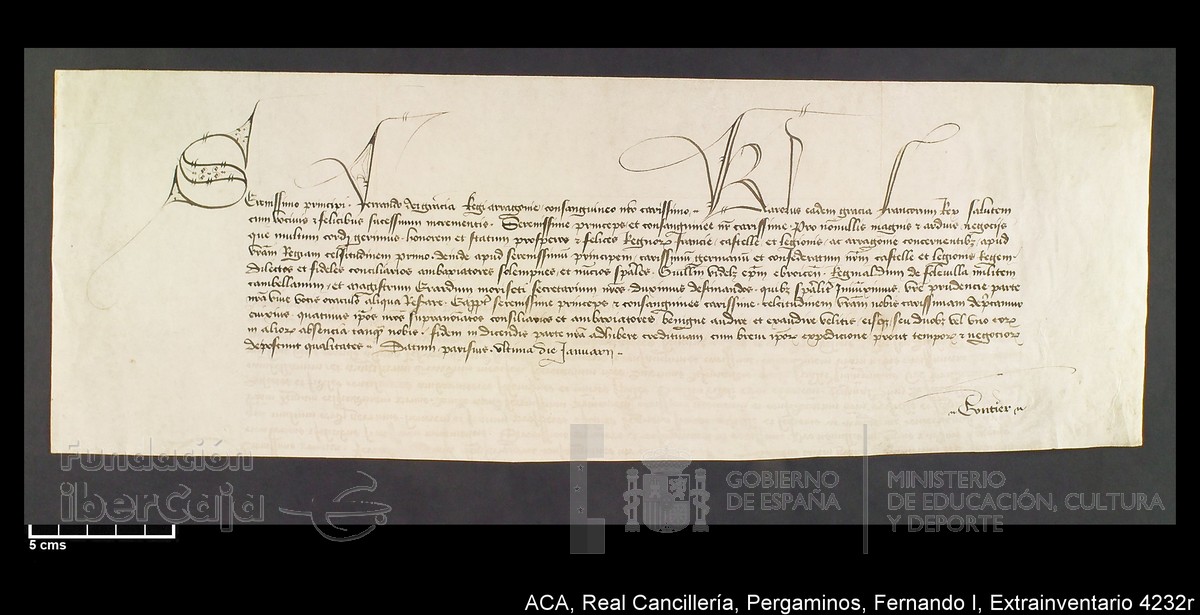 Serenissimo principi ffernando dei gratia Regi arragonie consanguineo nr̃o carissimo Karolus eadem gracia francorum Rex Salutem
cum votiuis et felicibus successuum incrementis. Serenissime princeps et consanguinee nr̃ carissime. Pro nonnullis magnis et arduis negociis
que multum cordi gerimus honorem et statum prosperos et felices Regnorꝝ francie castelle et legionis ac arragonie concernentibꝫ apud
vr̃am Regiam celsitudinem primo deinde apud serenissimū principem carissimū germanū et confederatum nr̃m castelle et legionis Regem
dilectos et fideles consiliarios ambaxiatores solempnes et nūcios sp̃ales Guillm̃ videlꝫ ep̃m ebroicen̄ Reginaldum de folevilla militem
cambellanum et magistrum Erardum moriseti secretarium nr̃os duximus destinandos quibꝫ sp̃alit̃ iniūximus vr̃e prudencie parte
nr̃a viue vocis oraculo aliqua referre. serenissime princeps et consanguinee carissime celsitudinem vr̃am nobis carissimam dep̃camur
quatinus ip̃os nr̃os supranoīatos consiliarios et ambaxiatores benigne audire et exaudire velitis eisqꝫ seu duobꝫ vel vno eorꝝ
in aliorꝝ absencia tanqꝫ nobis fidem in dicendis parte nr̃a adhibere creditiuam cum breui ip̃orꝝ expedicione prout temporꝝ et negociorꝝ
deposcunt qualitates. Datum parisius vltima die Januarii
Gontier
Fundación
iberCaja
GOBIERNO
DE ESPAÑA
MINISTERIO
DE EDUCACIÓN, CULTURA
Y DEPORTE
5 cms
ACA, Real Cancillería, Pergaminos, Fernando I, Extrainventario 4232r